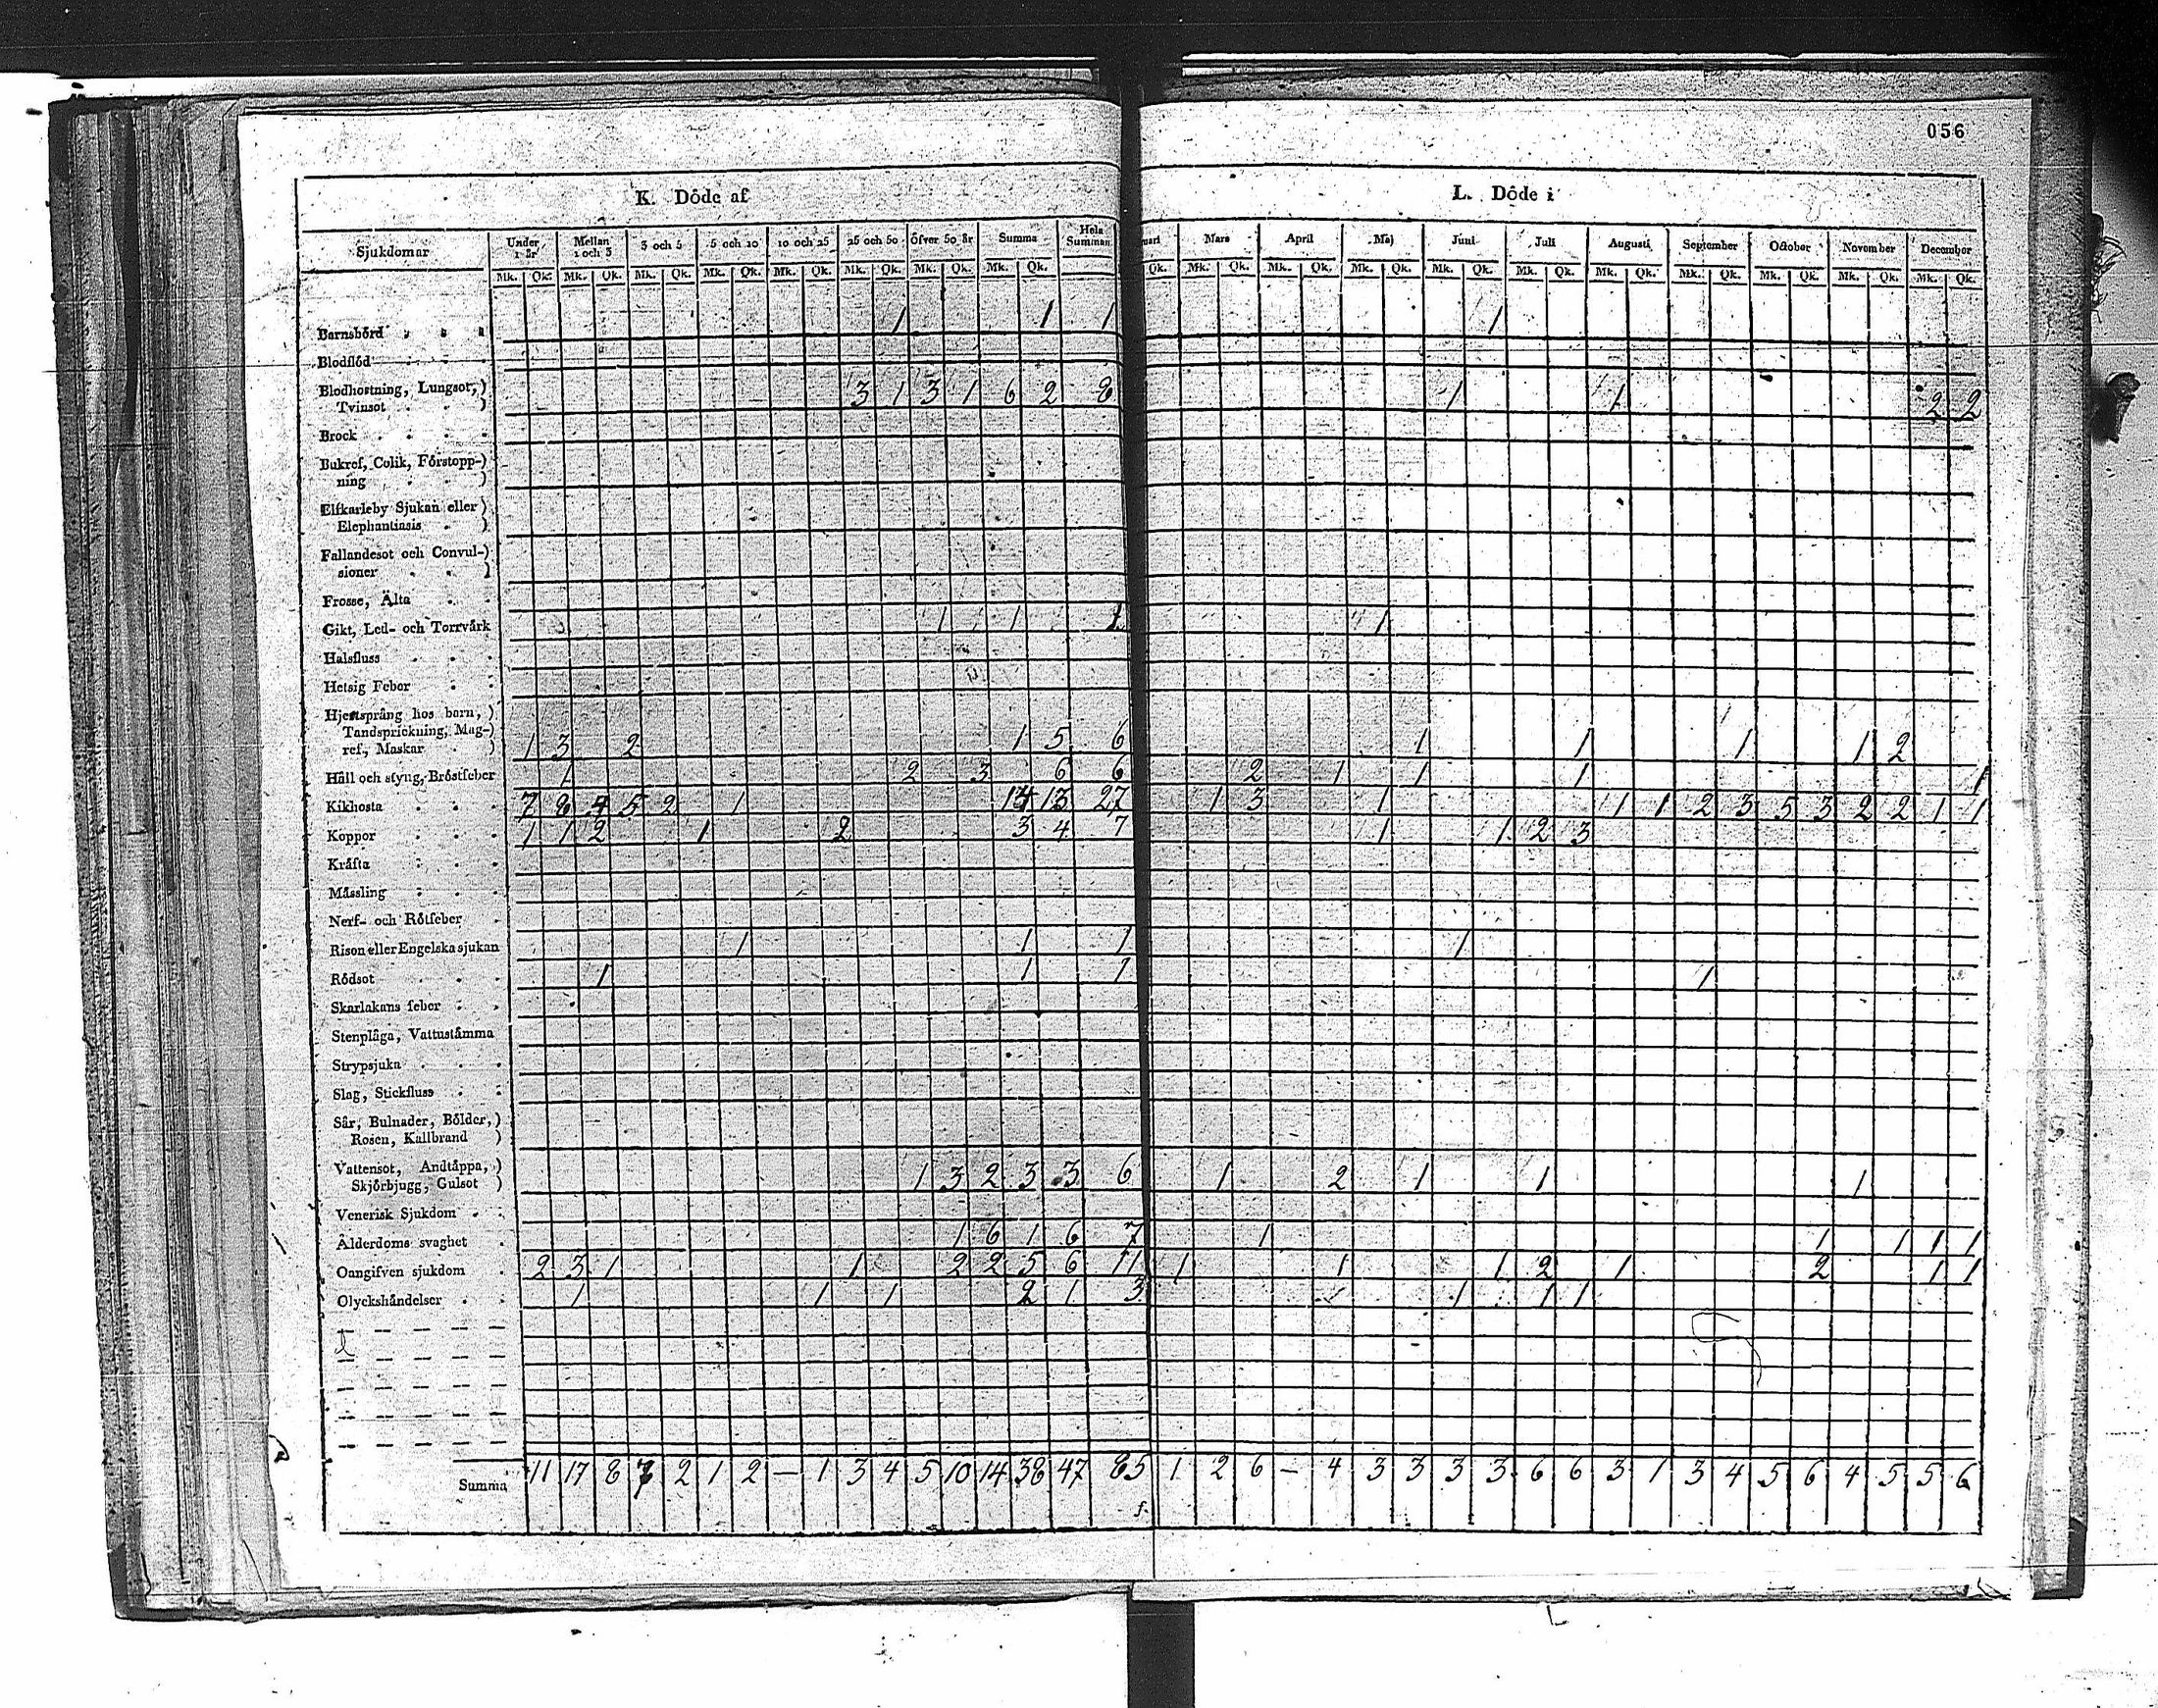 056
K. Döde af
L. Döde i
Sjukdomar Under 1 år Mellan 1 och 3 3 och 5 5 och 10 10 och 25 25 och 50 Öfver 50 år Summa Hela Summan
uari Mars April Maj Juni Juli Augusti September October November December
Mk. Qk. Mk. Qk. Mk. Qk. Mk. Qk. Mk. Qk. Mk. Qk. Mk. Qk. Mk. Qk.
Qk. Mk. Qk. Mk. Qk. Mk. Qk. Mk. Qk. Mk. Qk. Mk. Qk. Mk. Qk. Mk. Qk. Mk. Qk. Mk. Qk.
Barnsbörd 1 1 1 1
Blodflöd
Blodhostning, Lungsot,)
Tvinsot ) 3 1 3 1 6 2 8 1 1 2 2
Brock
Bukref, Colik, Förstopp-)
ning )
Elfkarleby Sjukan eller)
Elephantiasis )
Fallandesot och Convul-)
sioner )
Frosse, Älta
Gikt, Led- och Torrvärk 1 1 1 1
Halsfluss
Hetsig Feber
Hjertsprång hos barn, )
Tandsprickning, Mag-)
ref, Maskar ) 1 3 2 1 5 6 1 1 1 1 2
Håll och styng, Bröstfeber 1 2 3 6 6 2 1 1 1 1
Kikhosta 7 8 4 5 2 1 14 13 27 1 3 1 1 1 2 3 5 3 2 2 1 1
Koppor 1 1 2 1 2 3 4 7 1 1 2 3
Kräfta
Mässling
Nerf- och Rötfeber
Risen eller Engelska sjukan 1 1 1 1
Rödsot 1 1 1 1
Skarlakans feber
Stenplåga, Vattustämma
Strypsjuka
Slag, Stickfluss
Sår, Bulnader, Bölder,)
Rosen, Kallbrand )
Vattensot, Andtäppa, )
Skjörbjugg, Gulsot ) 1 3 2 3 3 6 1 2 1 1 1
Venerisk Sjukdom
Ålderdoms svaghet 1 6 1 6 7 1 1 1 1 1
Oangifven sjukdom 2 3 1 1 2 2 5 6 11 1 1 1 2 1 2 1 1
Olyckshändelser 1 1 1 2 1 3 1 1 1
Summa 11 17 8 7 2 1 2 — 1 3 4 5 10 14 38 47 85 1 2 6 – 4 3 3 3 3 6 6 3 1 3 4 5 6 4 5 5 6